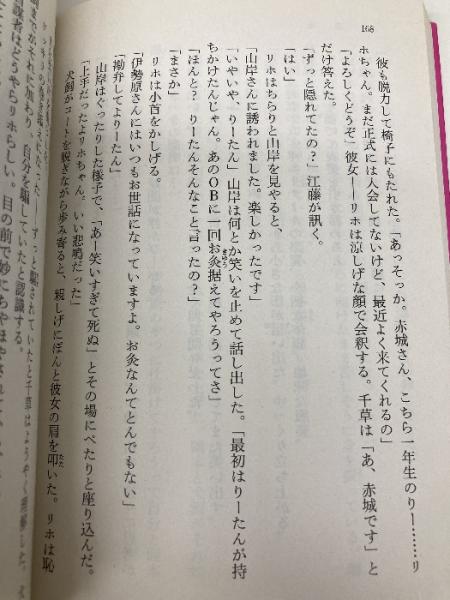 168
彼も脱力して椅子にもたれた。「あっそっか。赤城さん、こちら一年生のりー……リ
ホちゃん。まだ正式には入会してないけど、最近よく来てくれるの」
「よろしくどうぞ」彼女――リホは涼しげな顔で会釈する。千草は「あ、赤城です」と
だけ答えた。
「ずっと隠れてたの？」江藤が訊く。
「はい」
リホはちらりと山岸を見やると、
「山岸さんに誘われました。楽しかったです」
「いやいや、りーたん」山岸は何とか笑いを止めて話し出した。「最初はりーたんが持
ちかけたんじゃん。あのOBに一回お灸据えてやろうってさ」
「ほんと？　りーたんそんなこと言ったの？」
「まさか」
リホは小首をかしげる。
「伊勢原さんにはいつもお世話になっていますよ。お灸なんてとんでもない」
「勘弁してよりーたん」
山岸はぐったりした様子で、「あー笑いすぎて死ぬ」とその場にぺたりと座り込んだ。
「上手だったよリホちゃん。いい悲鳴だった」
犬飼がコートを脱ぎながら歩み寄ると、親しげにぽんと彼女の肩を叩いた。リホは恥
ずっと騙されていたと千草はようやく理解した。
まかそれに加わり、自分を騙していたと認識する。
はどうやらリホらしい。目の前で妙にちやほやされて